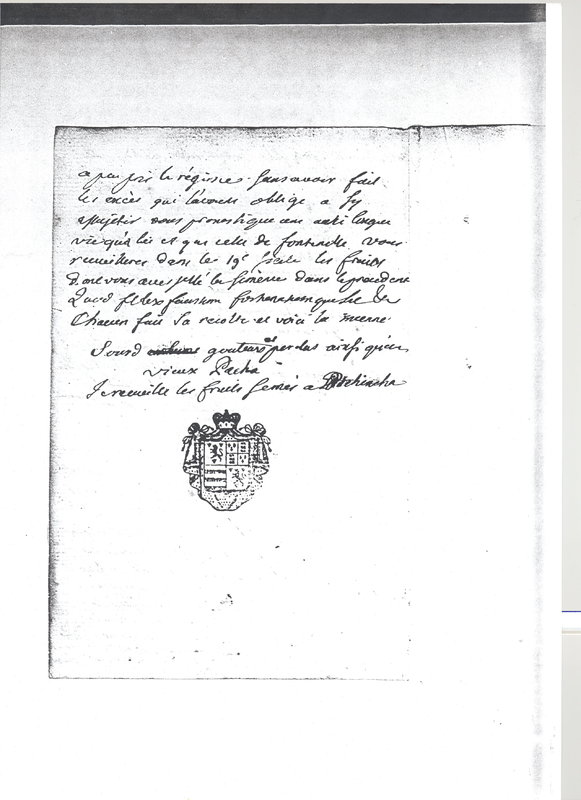 a peu près le régime. sans avoir fait
les excès qui l'avoient obligé a s'y
assujetir vous pronostique une aussi longue
vie qu'a lui et que celle de fontenelle vous
recueilleres dans le 19e siecle les fruits
dont vous aves jetté la semence dans le precedent
Quod felix faustum fortunatumque sit
Chacun fait sa recolte et voici la mienne.
Sourd gouteux perclus ainsi qu'un
vieux Pacha
Je recueille les fruits semés a